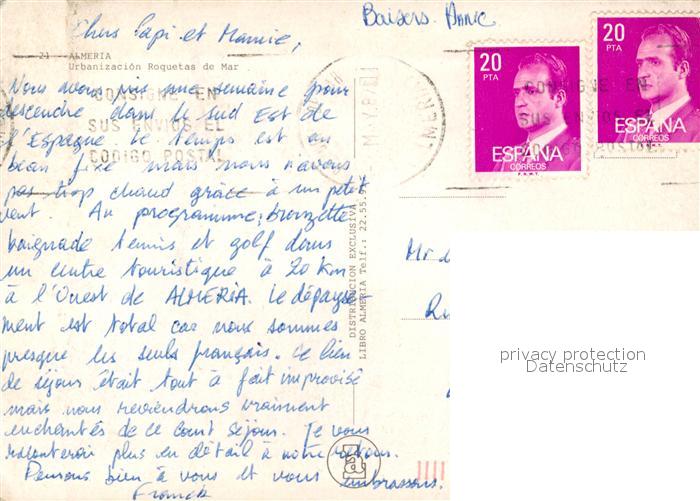 Chers Papi et Mamie,
Baisers. Annie
21 ALMERIA
Urbanización Roquetas de Mar
Nous avons mis une semaine pour
descendre dans le Sud Est de
l'Espagne le temps est au
beau fixe mais nous n'avons
pas trop chaud grâce à un petit
vent. Au programme: bronzette
baignade tennis et golf dans
un centre touristique à 20 km
à l'Ouest de ALMERIA. Le dépayse-
ment est total car nous sommes
presque les seuls français. Ce lieu
de séjour était tout à fait improvisé
mais nous reviendrons vraiment
enchantés de ce court séjour. Je vous
raconterai plus en détail à notre retour.
Pensons bien à vous et vous embrassons.
Franck
CONSIGNE EN
SUS ENVIOS EL
CODIGO POSTAL
DISTRIBUCION EXCLUSIVA
LIBRO ALMERIA Telf.: 22.55.
20
PTA
ESPAÑA
CORREOS
20
PTA
ESPAÑA
CORREOS
CONSIGNE EN
Mr
privacy protection
Datenschutz